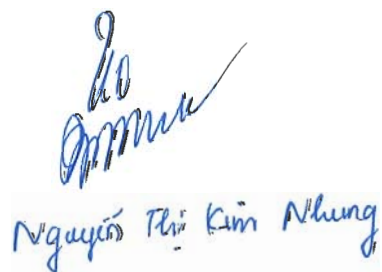 Nguyễn Thị Kim Nhung